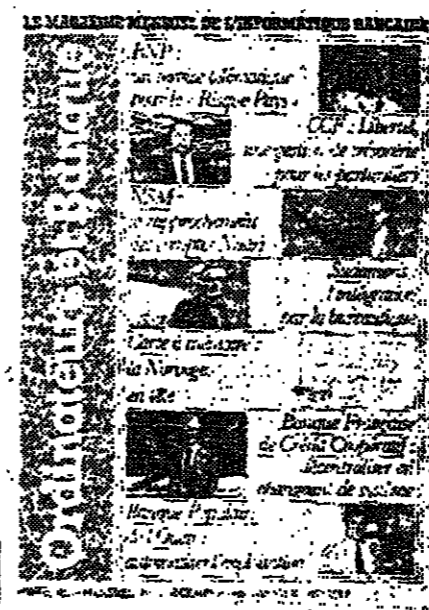 LE MAGAZINE MENSUEL DE L'INFORMATIQUE BANCAIRE
Ordinateurs et Banque
BNP :
un service télématique
pour le « Risque Pays »
CCF : Libertel,
une gestion de trésorerie
pour les particuliers
NSM :
le rapprochement
des comptes Nostri
Sudameris :
l'intégration
par la bureautique
Carte à mémoire :
la Norvège
en tête
Banque Française
de Crédit Coopératif :
décentraliser en
changeant de système
Banque Populaire
automatiser l'exploitation